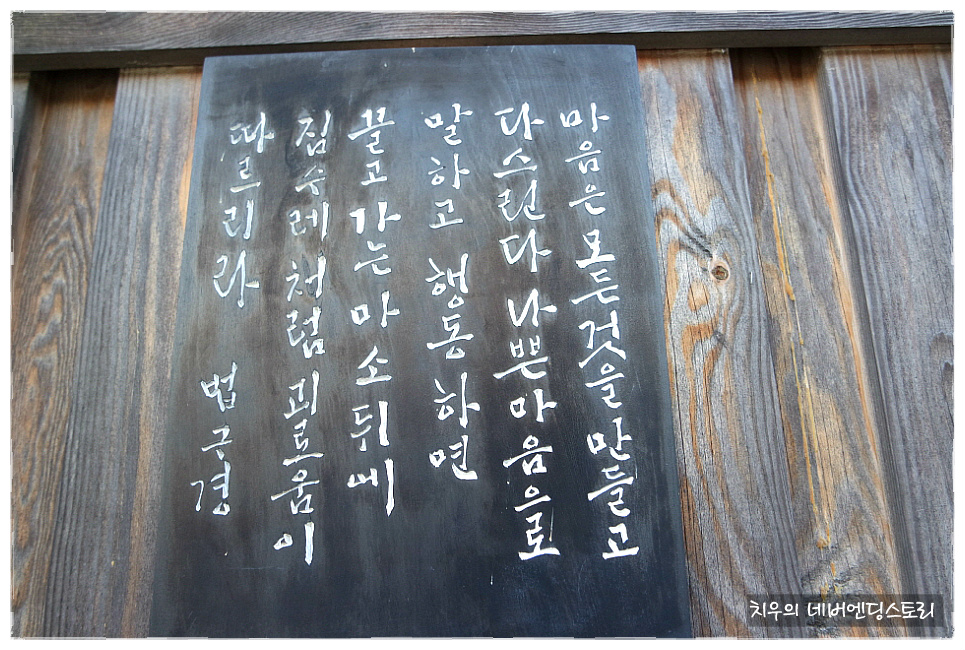 마음은모든것을만들고
다스린다 나쁜마음으로
말하고 행동하면
끌고가는마소뒤에
짐수레처럼괴로움이
따르리라 법구경
치우의 네버엔딩스토리